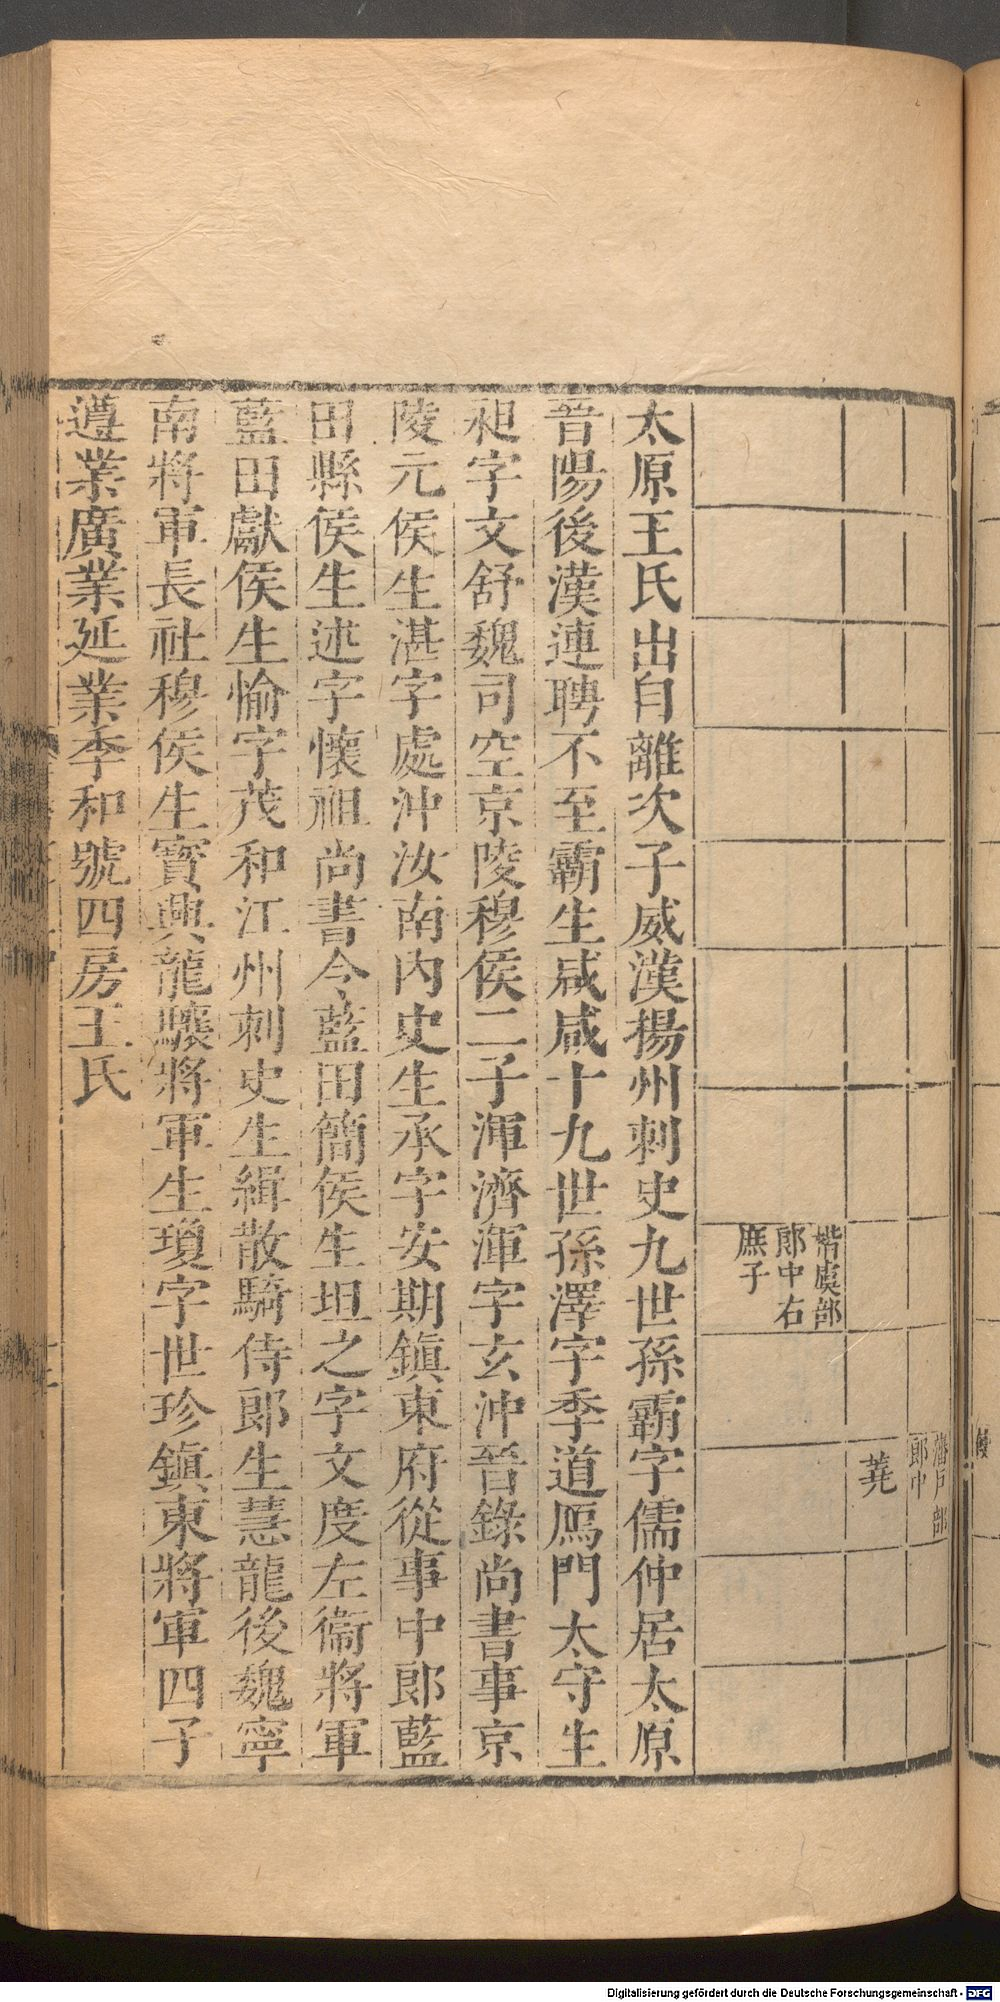 潘戶部
郎中
蕘
堦虞部
郎中右
庶子
太原王氏出自離次子威漢揚州刺史九世孫霸字儒仲居太原
晉陽後漢連聘不至霸生咸咸十九世孫澤字季道鴈門太守生
昶字文舒魏司空京陵穆侯二子渾濟渾字玄沖晉錄尚書事京
陵元侯生湛字處沖汝南內史生承字安期鎭東府從事中郎藍
田縣侯生述字懷祖尚書令藍田簡侯生坦之字文度左衞將軍
藍田獻侯生愉字茂和江州刺史生緝散騎侍郎生慧龍後魏寧
南將軍長社穆侯生寶興龍驤將軍生瓊字世珍鎭東將軍四子
遵業廣業延業季和號四房王氏
Digitalisierung gefördert durch die Deutsche Forschungsgemeinschaft - DFG